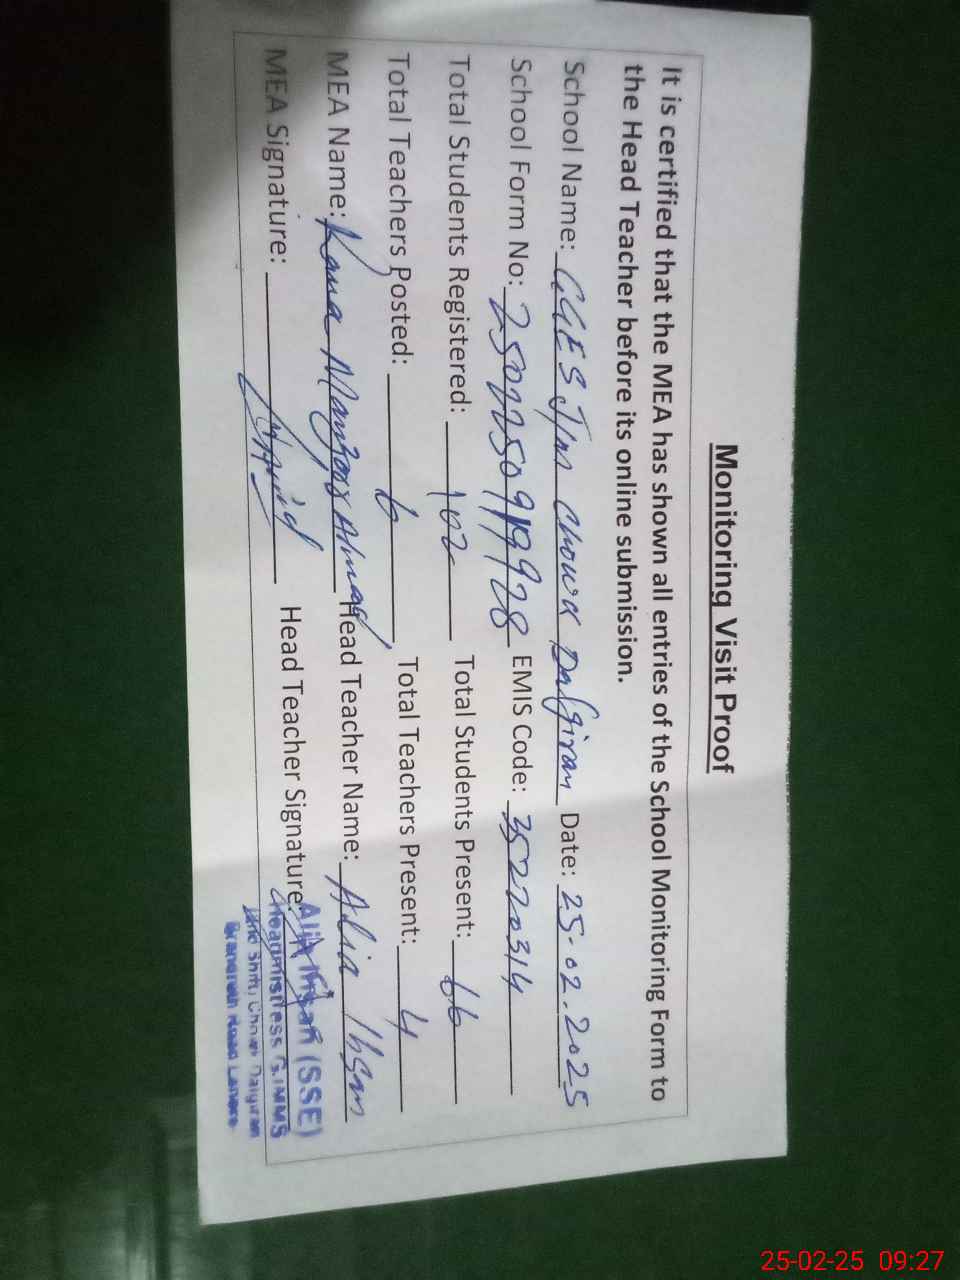 Monitoring Visit Proof
It is certified that the MEA has shown all entries of the School Monitoring Form to
the Head Teacher before its online submission.
School Name: GGES Jins Chowk Dalgiran Date: 25.02.2025
School Form No: EMIS Code: 35220314
Total Students Registered: 102 Total Students Present: 66
Total Teachers Posted: 6 Total Teachers Present: 4
MEA Name: Ahmad Head Teacher Name: Alia Ihsan
MEA Signature: Head Teacher Signature:
Alia Ihsan (SSE)
Headmistress G.
Chowk Dalgiran
Road Lahore
25-02-25 09:27